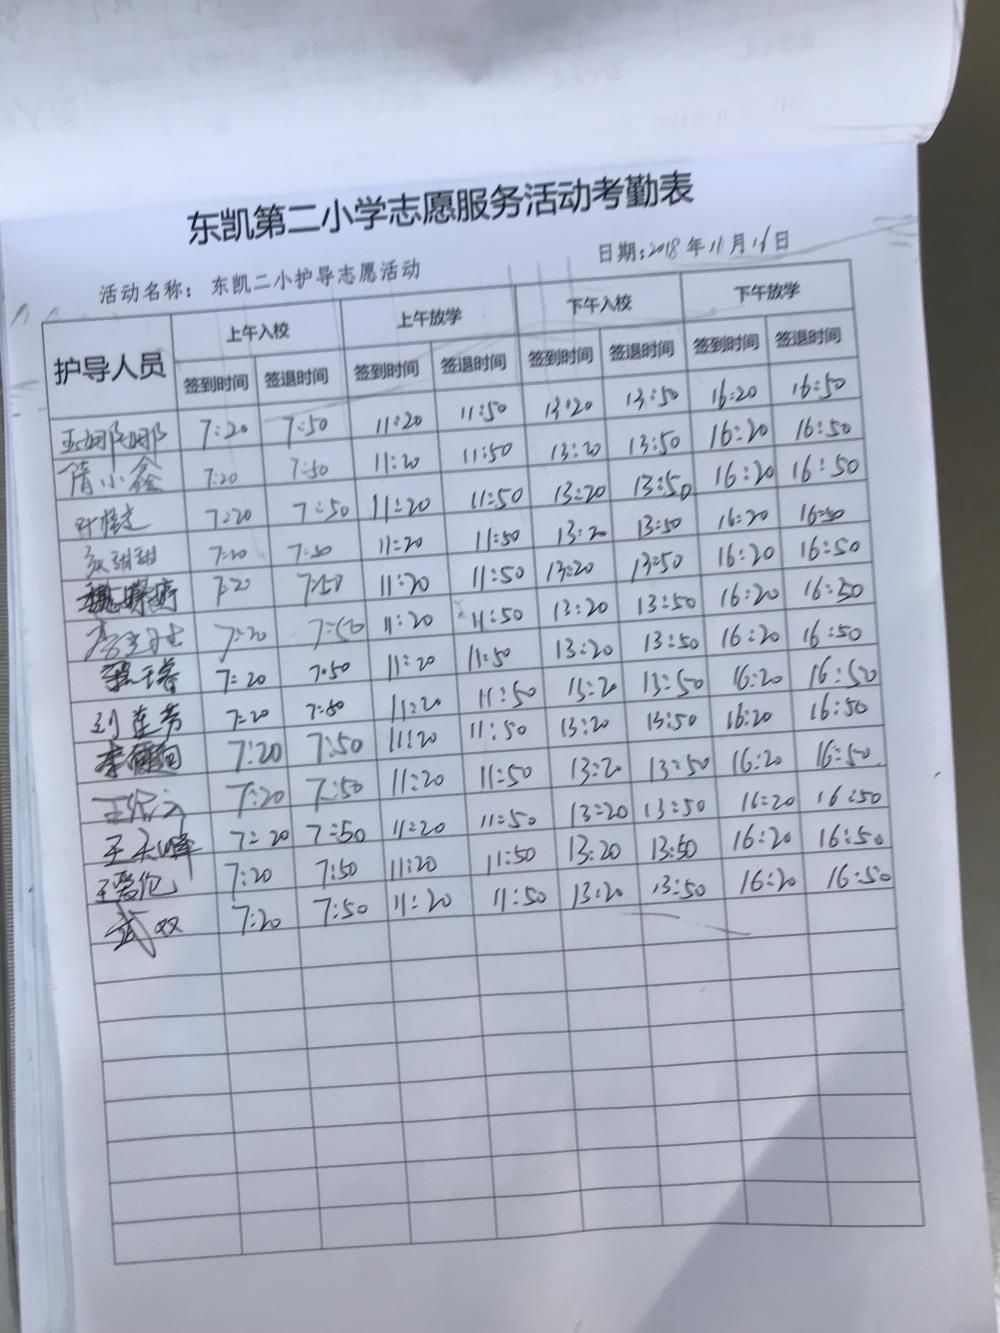 东凯第二小学志愿服务活动考勤表
活动名称：东凯二小护导志愿活动 日期：2018年11月16日
护导人员 上午入校 上午放学 下午入校 下午放学
签到时间 签退时间 签到时间 签退时间 签到时间 签退时间 签到时间 签退时间
王娜娜 7:20 7:50 11:20 11:50 13:20 13:50 16:20 16:50
隋小鑫 7:20 7:50 11:20 11:50 13:20 13:50 16:20 16:50
7:20 7:50 11:20 11:50 13:20 13:50 16:20 16:50
张甜甜 7:20 7:50 11:20 11:50 13:20 13:50 16:20 16:50
7:20 7:50 11:20 11:50 13:20 13:50 16:20 16:50
7:20 7:50 11:20 11:50 13:20 13:50 16:20 16:50
7:20 7:50 11:20 11:50 13:20 13:50 16:20 16:50
刘莲芳 7:20 7:50 11:20 11:50 13:20 13:50 16:20 16:50
7:20 7:50 11:20 11:50 13:20 13:50 16:20 16:50
7:20 7:50 11:20 11:50 13:20 13:50 16:20 16:50
王天峰 7:20 7:50 11:20 11:50 13:20 13:50 16:20 16:50
王爱伦 7:20 7:50 11:20 11:50 13:20 13:50 16:20 16:50
武双 7:20 7:50 11:20 11:50 13:20 13:50 16:20 16:50